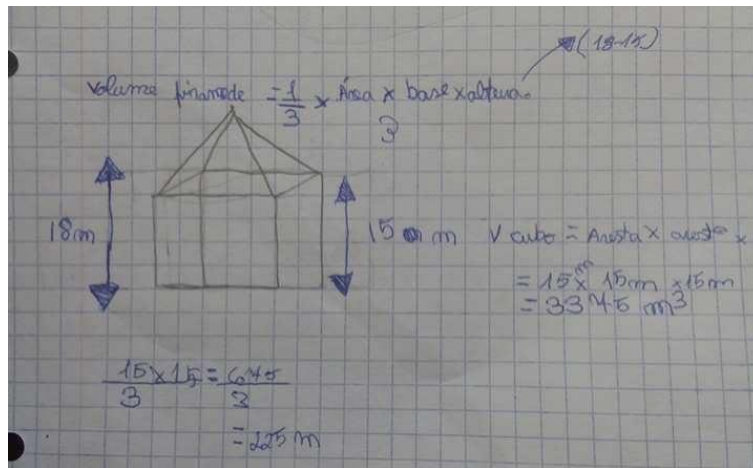 (18-15)
Volume piramide = 1/3 x Área x base x altura.
3
18m
15 m
V cubo = Aresta x aresta x
= 15m x 15m x 15m
= 3375 m³
15 x 15 = 675
3 3
= 225 m